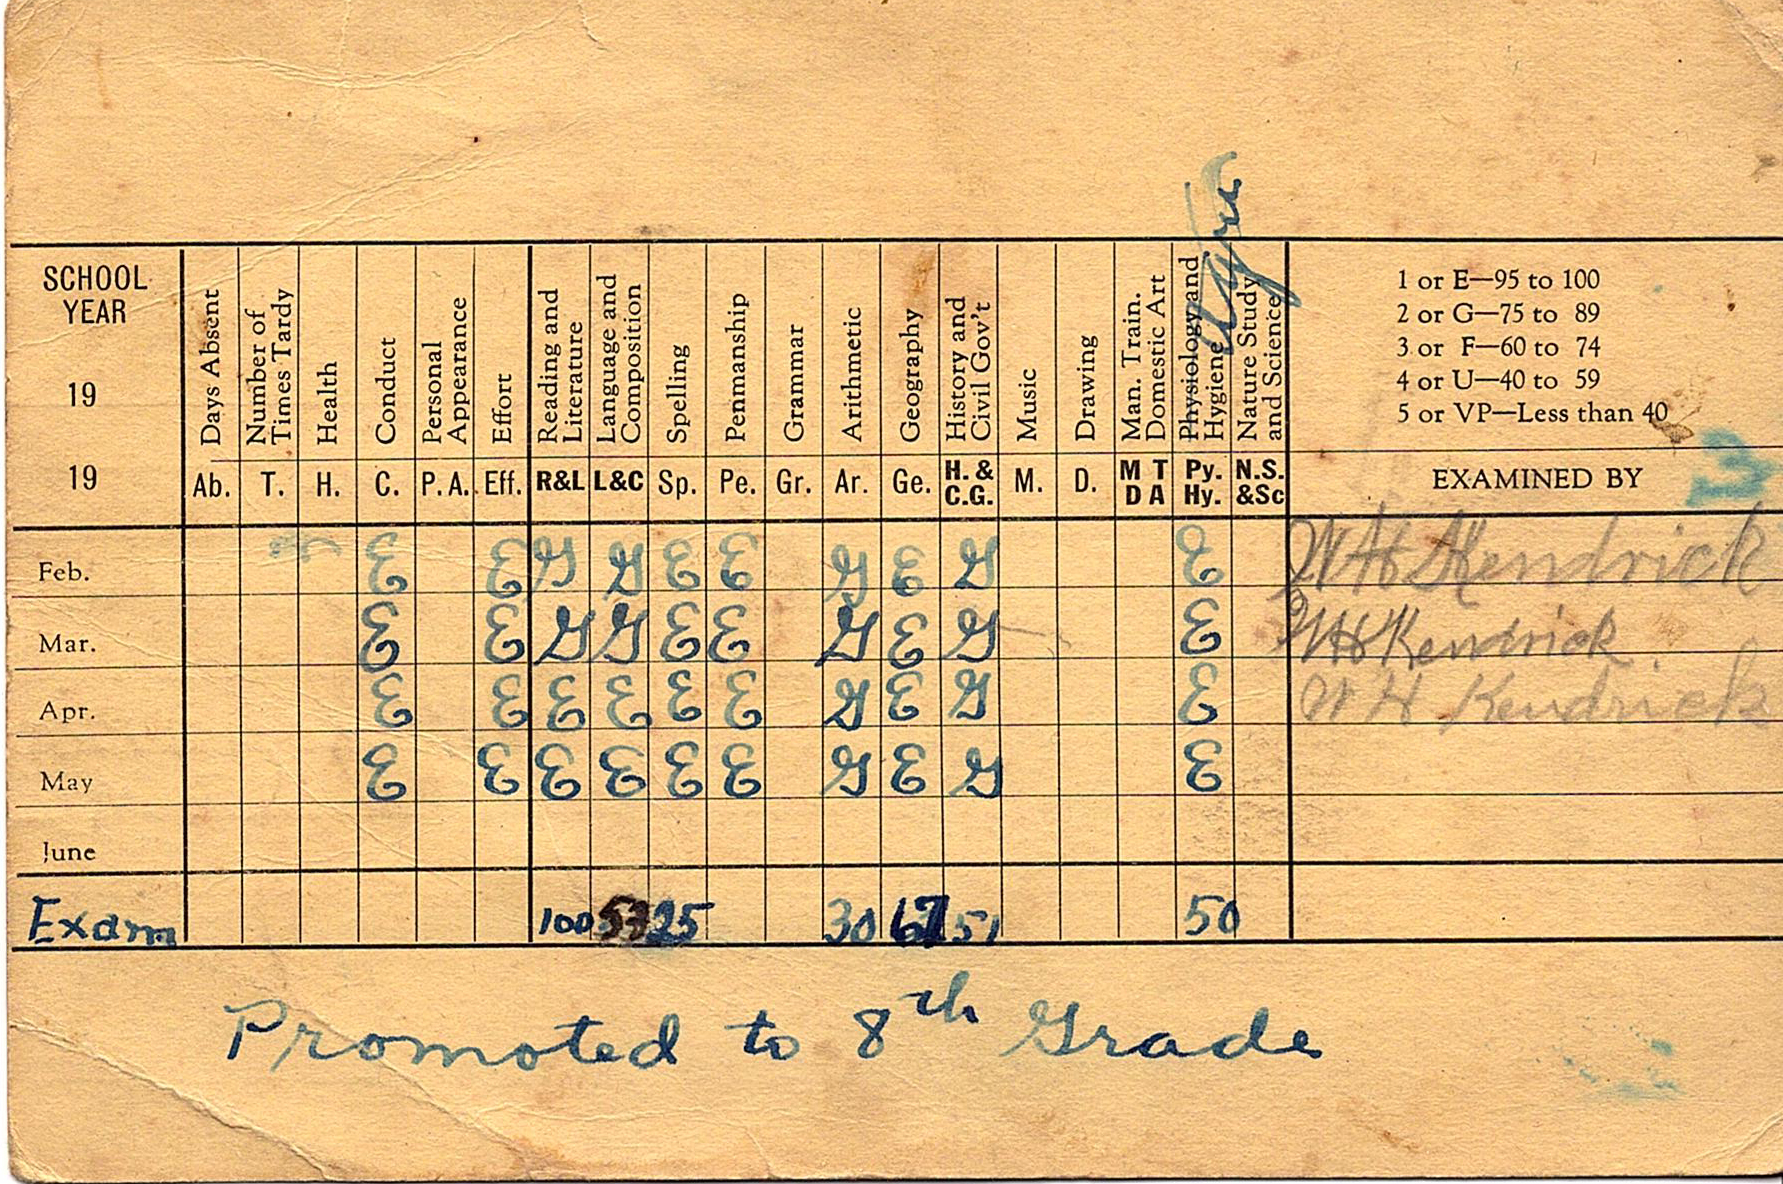 SCHOOL YEAR 19 19
Days Absent Number of Times Tardy Health Conduct Personal Appearance Effort Reading and Literature Language and Composition Spelling Penmanship Grammar Arithmetic Geography History and Civil Gov't Music Drawing Man. Train. Domestic Art Physiology and Hygiene Nature Study and Science
1 or E—95 to 100
2 or G—75 to 89
3 or F—60 to 74
4 or U—40 to 59
5 or VP—Less than 40
Ab. T. H. C. P. A. Eff. R&L L&C Sp. Pe. Gr. Ar. Ge. H. & C.G. M. D. M T D A Py. Hy. N.S. &Sc EXAMINED BY
Feb. E E G G E E G E G E W H Kendrick
Mar. E E G G E E G E G E W H Kendrick
Apr. E E E E E E G E G E W H Kendrick
May E E E E E E G E G E
June
Exam 100 53 25 30 67 51 50
Promoted to 8th Grade